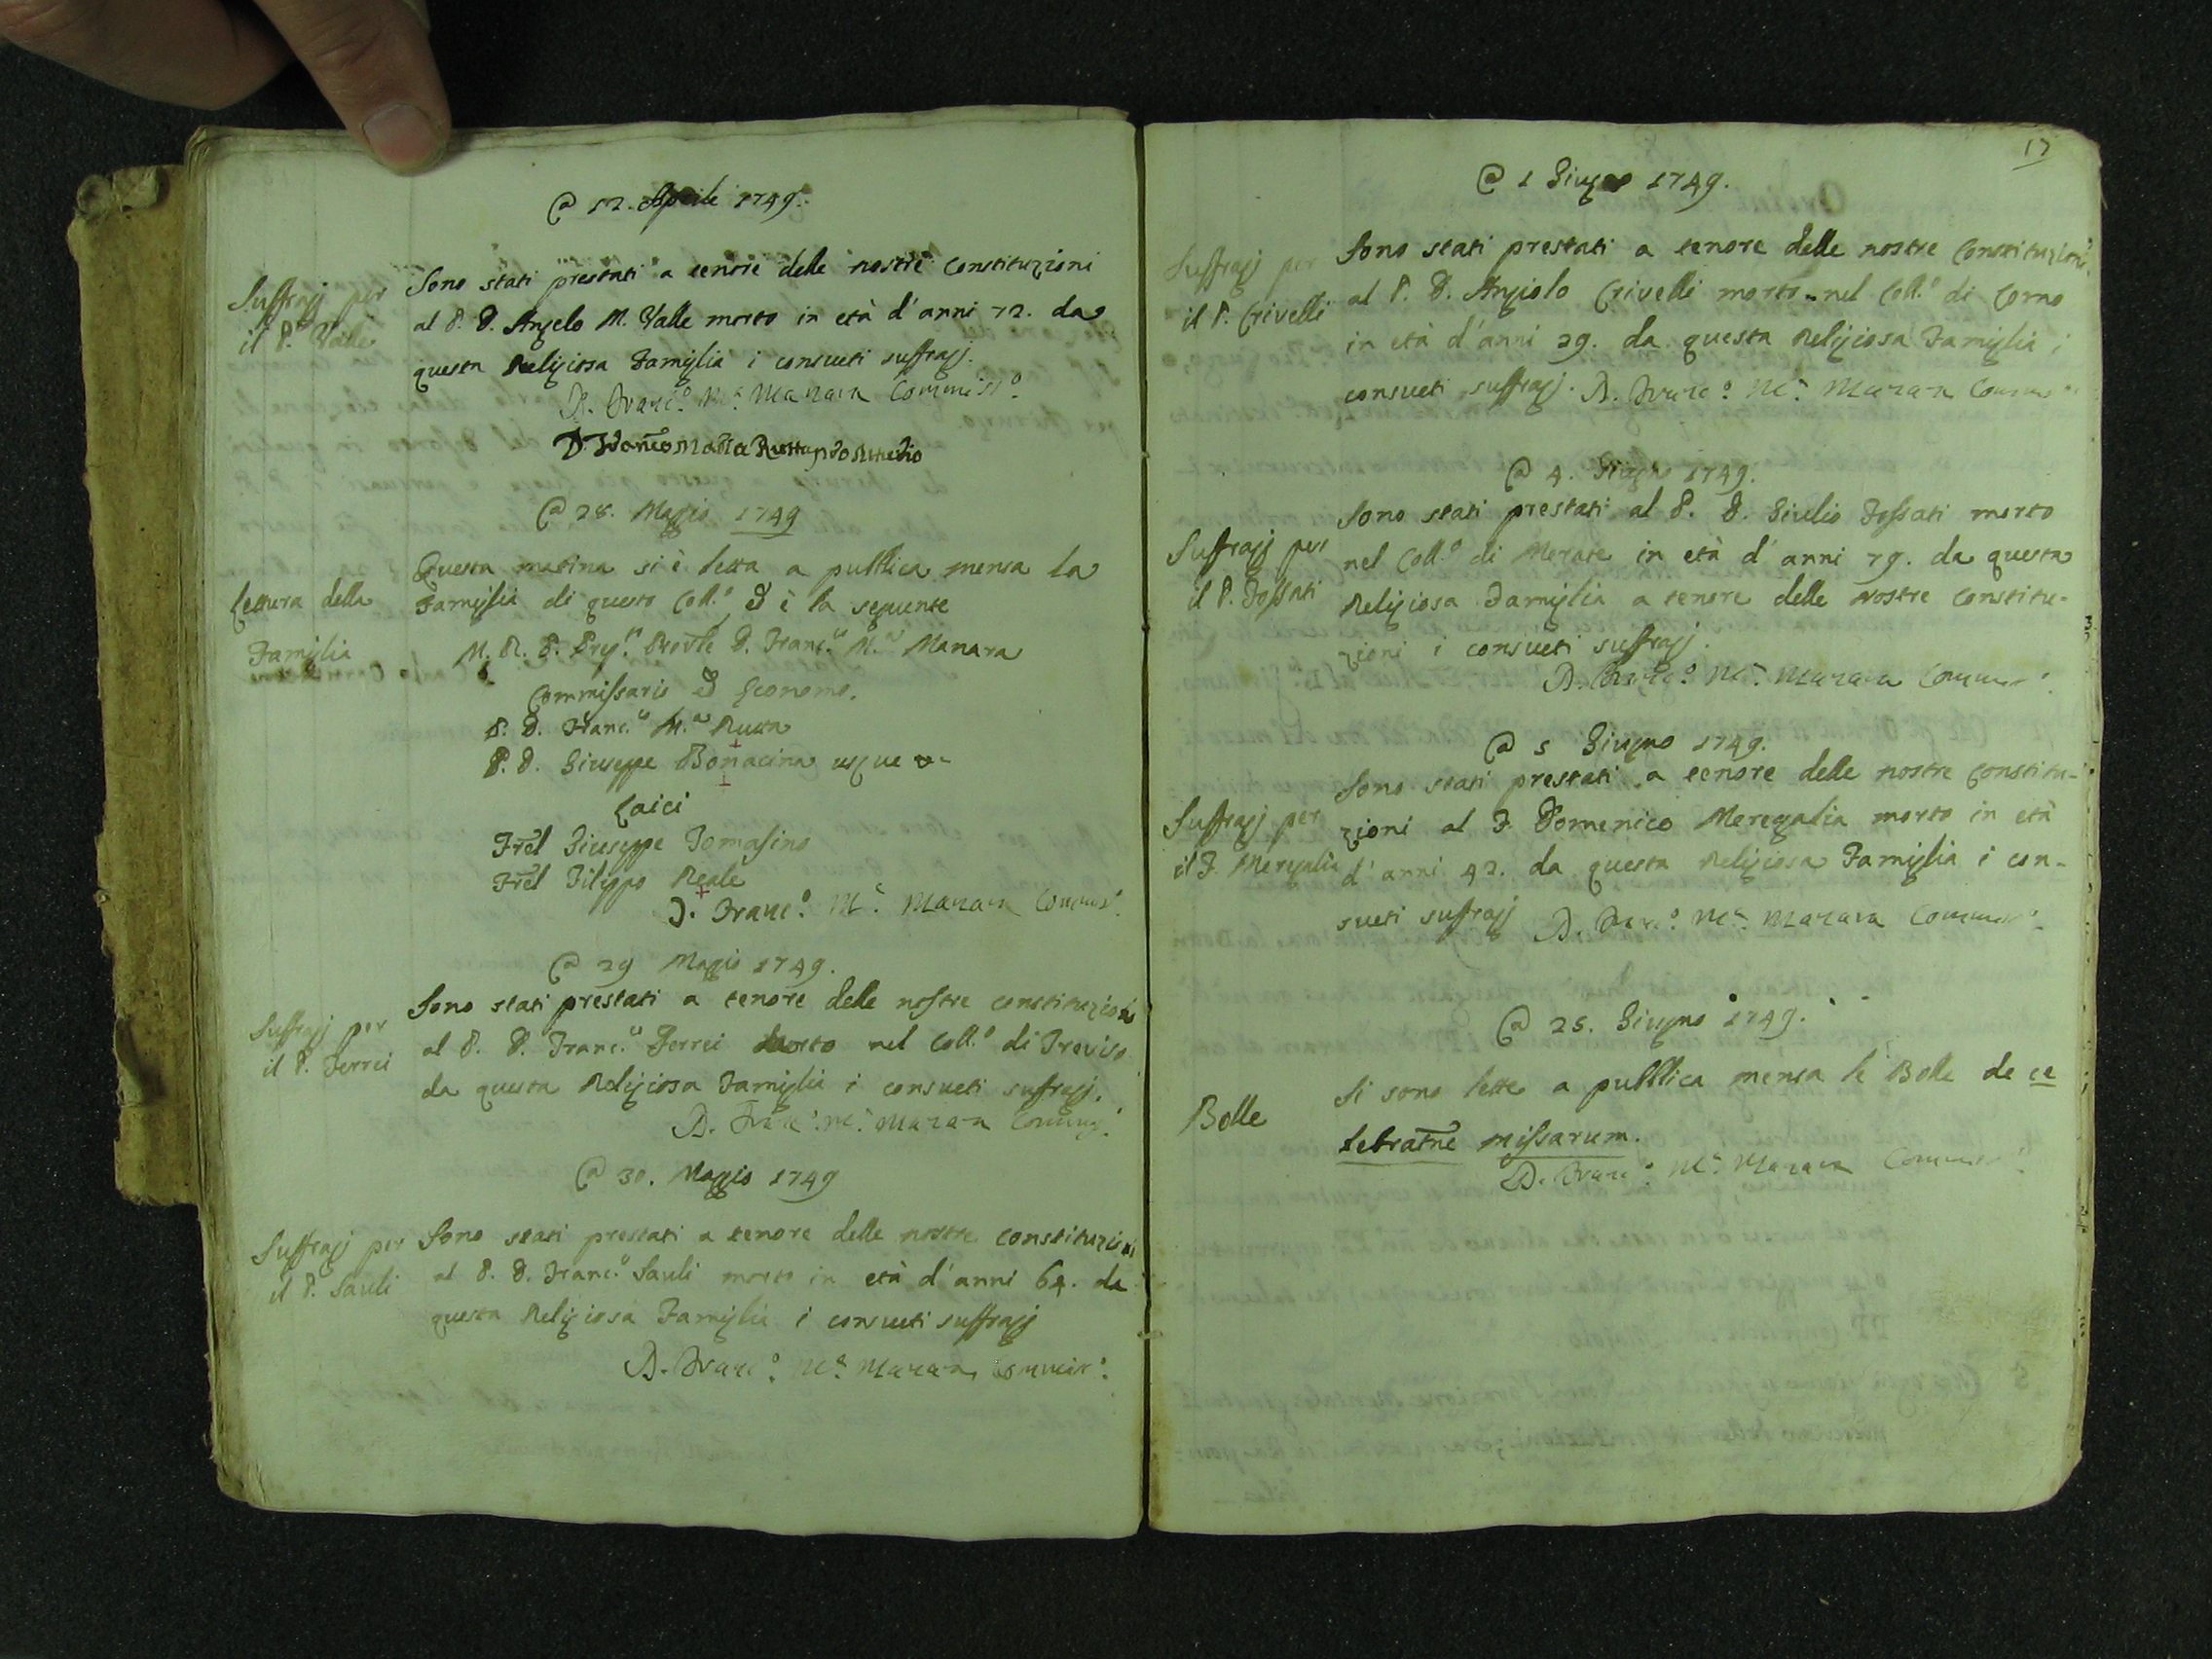 @ 12. Aprile 1749.
Suffragj per
il P. Valle
Sono stati prestati a tenore delle nostre Constituzioni
al P. D. Angelo M. Valle morto in età d'anni 72. da
questa Religiosa Famiglia i consueti suffragj.
D. Franc.º M.ª Manara Commiss.º
D. Franco Maria Rutta
@ 28. Maggio 1749
Lettura della
Famiglia
Questa matina si è letta a pubblica mensa la
Famiglia di questo Coll.º ed è la seguente
M. R. P. Prep.to D. Franc.º M.ª Manara
Commissario ed Economo.
P. D. Franc.º M.ª Rutta
P. D. Giuseppe Bonacina usque a-
Laici
Frēl Giuseppe Tomasino
Frēl Filippo Reale
D. Franc.º M.ª Manara Commis.º
@ 29 Maggio 1749.
Suffragj per
il P. Ferrei
Sono stati prestati a tenore delle nostre constituzioni
al P. D. Franc.º Ferrei Morto nel Coll.º di Treviso
da questa Religiosa Famiglia i consueti suffragj.
D. Franc.º M.ª Manara Commis.º
@ 30. Maggio 1749
Suffragj per
il P. Sauli
Sono stati prestati a tenore delle nostre constituzioni
al P. D. Franc.º Sauli morto in età d'anni 64. da
questa Religiosa Famiglia i consueti suffragj
D. Franc.º M.ª Manara Commiss.º
17
@ 1 Giugno 1749.
Suffragj per
il P. Crivelli
Sono stati prestati a tenore delle nostre Constituzioni
al P. D. Angiolo Crivelli morto nel Coll.º di Como
in età d'anni 29. da questa Religiosa Famiglia i
consueti suffragj. D. Franc.º M.ª Manara Commis.º
@ 4. Giugno 1749.
Suffragj per
il P. Fossati
Sono stati prestati al P. D. Giulio Fossati morto
nel Coll.º di Merate in età d'anni 79. da questa
Religiosa Famiglia a tenore delle nostre Constitu-
zioni i consueti suffragj.
D. Franc.º M.ª Manara Commis.º
@ 5 Giugno 1749.
Suffragj per
il F. Meregalia
Sono stati prestati a tenore delle nostre Constitu-
zioni al F. Domenico Meregalia morto in età
d'anni 42. da questa Religiosa Famiglia i con-
sueti suffragj D. Franc.º M.ª Manara Commis.º
@ 25. Giugno 1749.
Bolle
Si sono lette a pubblica mensa le Bolle de ce
lebratne missarum.
D. Franc.º M.ª Manara Commis.º